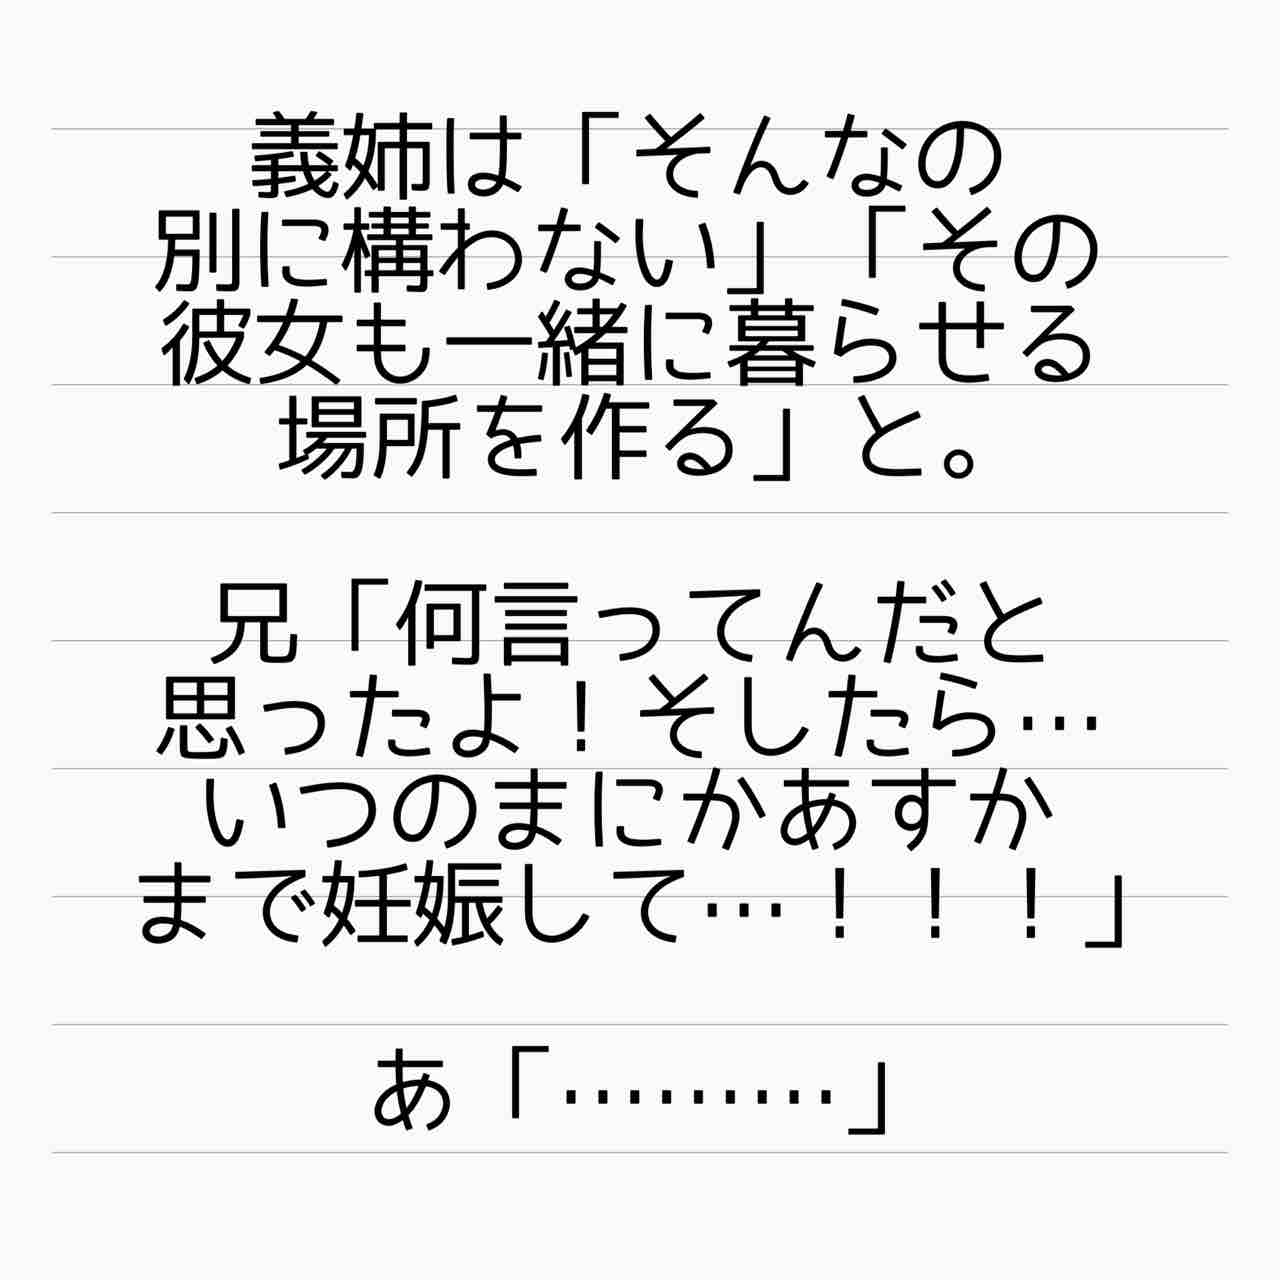 義姉は「そんなの
別に構わない」「その
彼女も一緒に暮らせる
場所を作る」と。
兄「何言ってんだと
思ったよ！そしたら…
いつのまにかあすか
まで妊娠して…！！！」
あ「………」